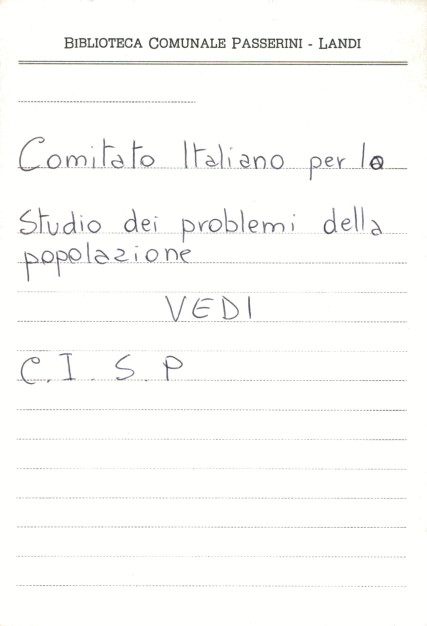 BIBLIOTECA COMUNALE PASSERINI - LANDI
Comitato Italiano per lo
Studio dei problemi della
popolazione
VEDI
C.I.S.P